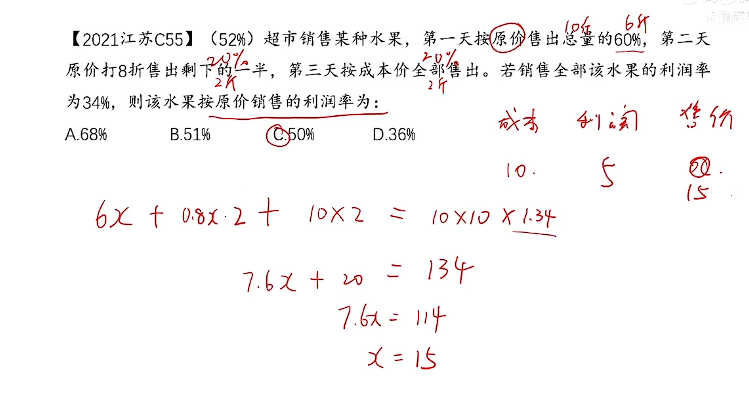 【2021江苏C55】（52%）超市销售某种水果，第一天按原价售出总量的60%，第二天
原价打8折售出剩下的一半，第三天按成本价全部售出。若销售全部该水果的利润率
为34%，则该水果按原价销售的利润率为：
A.68% B.51% C.50% D.36%
10斤 6斤
20% 20%
2斤 2斤
成本 利润 售价
10. 5
15
6x + 0.8x·2 + 10×2 = 10×10×1.34
7.6x + 20 = 134
7.6x = 114
x = 15